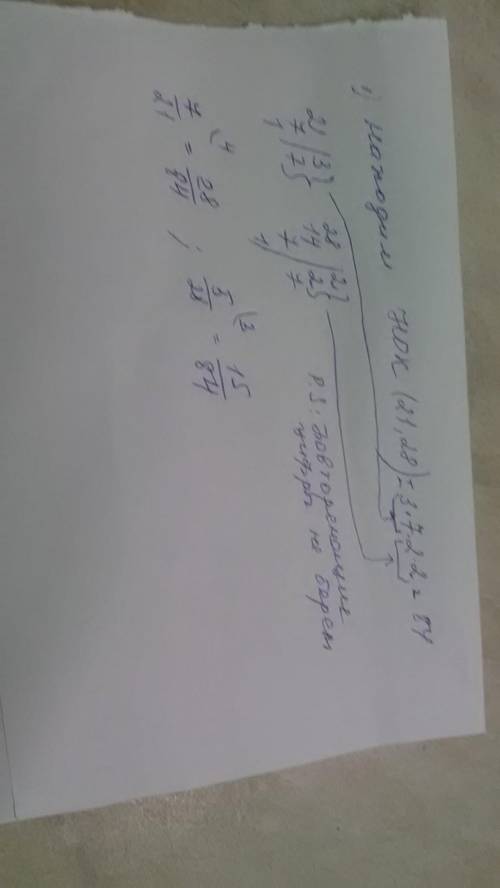 1) Находим НОК (21,28)=3·7·2·2=84
21 | 3
7 | 7
1
28 | 2
14 | 2
7 | 7
1
P.S: Повторяющие
цифры не берем
4/21 \4 = 28/84 ; 5/28 \3 = 15/84